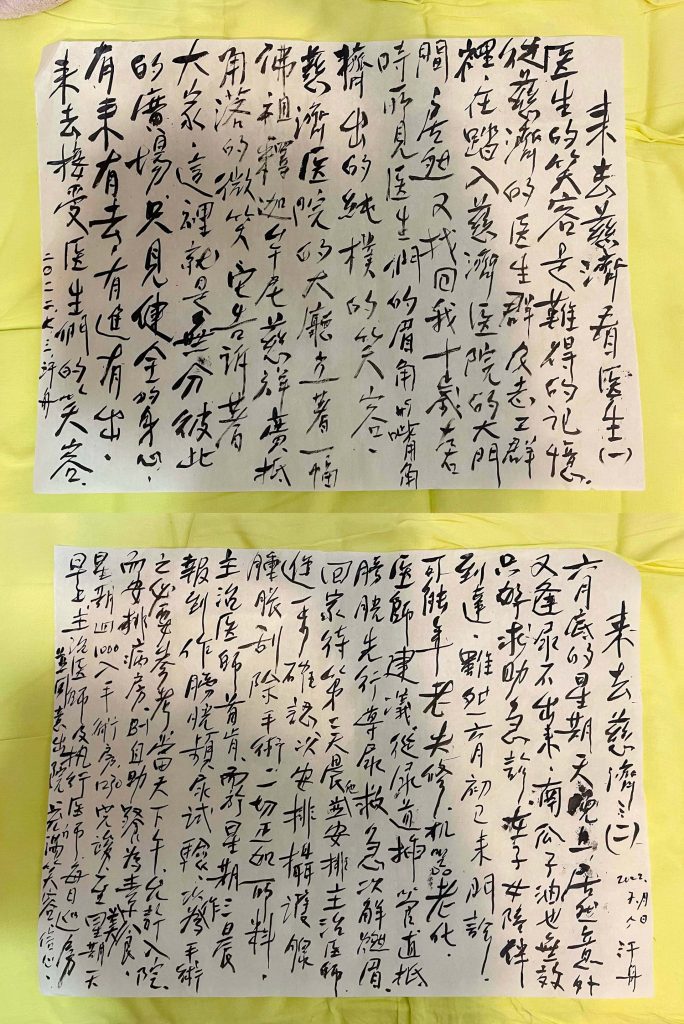 來去慈濟看医生(一)
医生的笑容是難得的记憶.
從慈濟的医生群及志工群
裡.在踏入慈濟医院的大門
間.居然又找回我十歲左右
時所見医生們的眉角的嘴角
擠出的純樸的笑容.
慈濟医院的大廳立著一幅
佛祖釋迦牟尼慈祥廣抵
角落的微笑.它告訴著
大家.這裡就是無分彼此
的廣場.只見健全的身心.
有来有去.有進有出.
来去接受医生們的笑容.
二〇二二.七.三.汗舟
来去慈濟(二)
2022.7月 日 汗舟
六月底的星期天晚上.居然意外
又逢尿不出来.南瓜子油也無效
只好求助急診.妻子女陪伴
到達.雖然六月初已来門診.
可能年老失修.机器老化.
医師建議從尿道插管直抵
膀胱先行導尿救急次解燃眉.
回家待第二天晨他安排主治医師
進一步確認次安排攝護腺
腫脹刮除手術.一切正如所料.
主治医師首肯.而於星期三日晨
報到作膀胱頻尿試驗.以為手術
之必要参考.當天下午.允許入院.
而安排病房.助自助餐為素食.
星期四1000入手術房.1530完竣.至星期天
早上主治医師及執行医師每日巡房
並同意出院.充滿笑容信心.